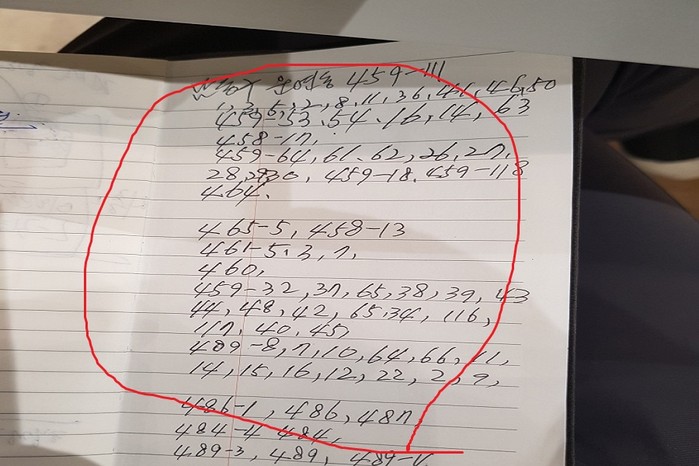 459-111
1, 3, 5, 2, 8, 11, 36, 41, 46, 50
459-53, 54, 16, 14, 63
458-17,
459-64, 61, 62, 26, 27,
28, 29, 30, 459-18, 459-118
464.
465-5, 458-13
461-5, 3, 7,
460,
459-32, 37, 65, 38, 39, 43
44, 48, 42, 65, 34, 116,
117, 40, 45,
489-8, 7, 10, 64, 66, 11,
14, 15, 16, 12, 22, 2, 9,
486-1, 486, 487
484-4 484,
489-3, 489,